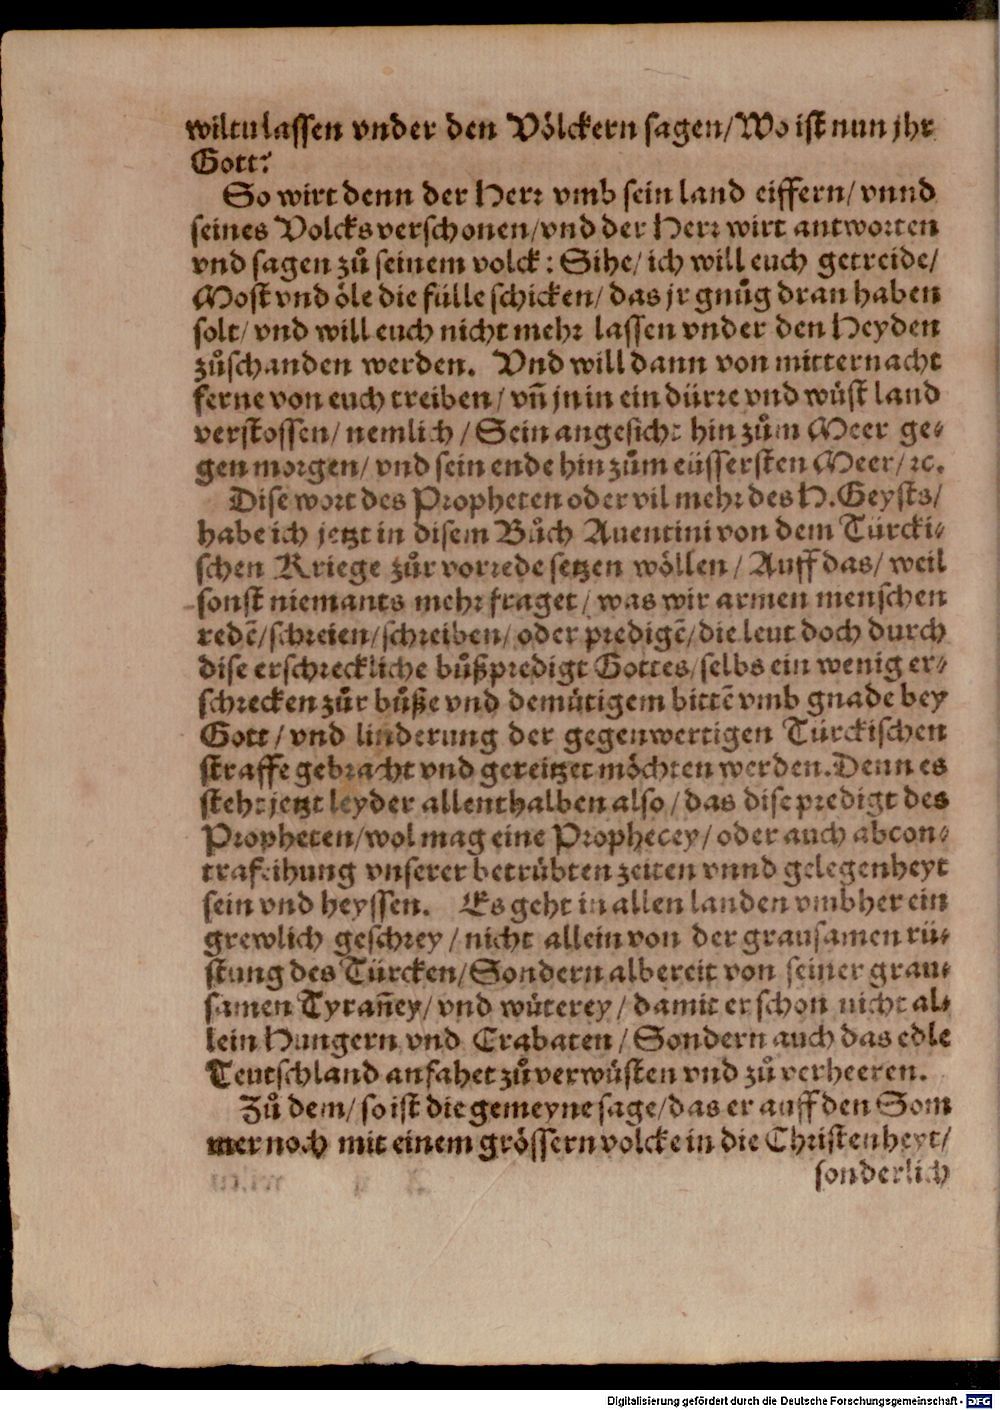 wiltu lassen vnder den Völckern sagen/Wo ist nun jhr
Gott?
So wirt denn der Herr vmb sein land eiffern/ vnnd
seines Volcks verschonen/vnd der Herr wirt antworten
vnd sagen zů seinem volck: Sihe/ ich will euch getreide/
Most vnd öle die fülle schicken/ das jr gnůg dran haben
solt/ vnd will euch nicht mehr lassen vnder den Heyden
zůschanden werden. Vnd will dann von mitternacht
ferne von euch treiben/ vñ jn in ein dürre vnd wůst land
verstossen/ nemlich/ Sein angesicht hin zům Meer ge-
gen morgen/ vnd sein ende hin zům eüssersten Meer/ ꝛc.
Dise wort des Propheten oder vil mehr des H. Geysts/
habe ich jetzt in disem Bůch Auentini von dem Türcki-
schen Kriege zůr vorrede setzen wöllen/ Auff das/ weil
sonst niemants mehr fraget/ was wir armen menschen
redē/schreien/schreiben/ oder predigē/die leut doch durch
dise erschreckliche bůßpredigt Gottes/selbs ein wenig er-
schrecken zůr bůße vnd demütigem bittē vmb gnade bey
Gott/ vnd linderung der gegenwertigen Türckischen
straffe gebracht vnd gereitzet möchten werden. Denn es
steht jetzt leyder allenthalben also/ das dise predigt des
Propheten/wol mag eine Prophecey/ oder auch abcon-
trafeihung vnserer betrübten zeiten vnnd gelegenheyt
sein vnd heyssen. Es geht in allen landen vmbher ein
grewlich geschrey/ nicht allein von der grausamen rü-
stung des Türcken/Sondern albereit von seiner grau-
samen Tyrañey/ vnd wüterey/ damit er schon nicht al-
lein Hungern vnd Crabaten/ Sondern auch das edle
Teutschland anfahet zů verwüsten vnd zů verheeren.
Zů dem/ so ist die gemeyne sage/das er auff den Som
mer noch mit einem grössern volcke in die Christenheyt/
sonderlich
Digitalisierung gefördert durch die Deutsche Forschungsgemeinschaft - DFG